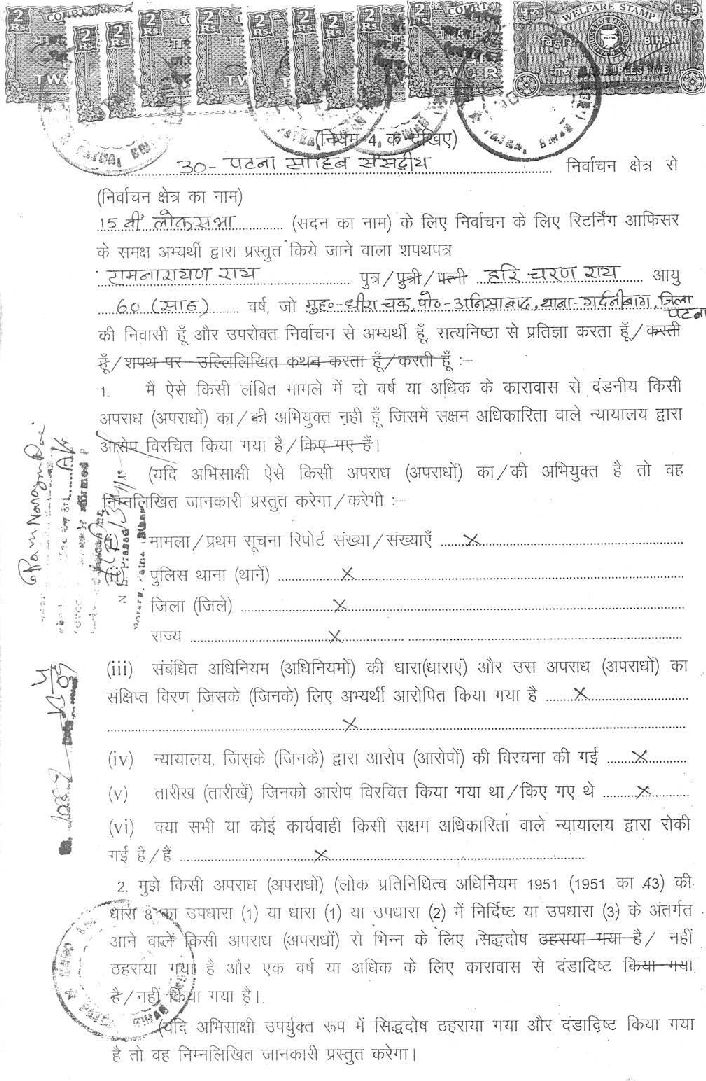 WELFARE STAMP
BIHAR
(नियम 4 क देखिए)
30- पटना साहिब संसदीय निर्वाचन क्षेत्र से
(निर्वाचन क्षेत्र का नाम)
15 वीं लोकसभा (सदन का नाम) के लिए निर्वाचन के लिए रिटर्निंग आफिसर
के समक्ष अभ्यर्थी द्वारा प्रस्तुत किये जाने वाला शपथपत्र
रामनारायण राय पुत्र/पुत्री/पत्नी हरि चरण राय आयु
60 (साठ) वर्ष, जो मुह०-धीरा चक, पो०-अनिसाबाद, थाना-गर्दनीबाग, जिला पटना
की निवासी हूँ और उपरोक्त निर्वाचन से अभ्यर्थी हूँ, सत्यनिष्ठा से प्रतिज्ञा करता हूँ/करती
हूँ/शपथ पर उल्लिलिखित कथन करता हूँ/करती हूँ :–
1. मैं ऐसे किसी लंबित मामले में दो वर्ष या अधिक के कारावास से दंडनीय किसी
अपराध (अपराधों) का/की अभियुक्त नही हूँ जिसमें सक्षम अधिकारिता वाले न्यायालय द्वारा
आरोप विरचित किया गया है/किए गए हैं।
(यदि अभिसाक्षी ऐसे किसी अपराध (अपराधों) का/की अभियुक्त है तो वह
निम्नलिखित जानकारी प्रस्तुत करेगा/करेगी :–
मामला/प्रथम सूचना रिपोर्ट संख्या/संख्याएँ X
पुलिस थाना (थानें) X
जिला (जिले) X
राज्य X
Ram Narayan Rai
(iii) संबंधित अधिनियम (अधिनियमों) की धारा(धाराएं) और उस अपराध (अपराधों) का
संक्षिप्त विरण जिसके (जिनके) लिए अभ्यर्थी आरोपित किया गया है X
X
(iv) न्यायालय, जिसके (जिनके) द्वारा आरोप (आरोपों) की विरचना की गई X
(v) तारीख (तारीखें) जिनको आरोप विरचित किया गया था/किए गए थे X
(vi) क्या सभी या कोई कार्यवाही किसी सक्षम अधिकारिता वाले न्यायालय द्वारा रोकी
गई है/हैं X
2. मुझे किसी अपराध (अपराधों) (लोक प्रतिनिधित्व अधिनियम 1951 (1951 का 43) की
धारा 8 का उपधारा (1) या धारा (1) या उपधारा (2) में निर्दिष्ट या उपधारा (3) के अंतर्गत
आने वाले किसी अपराध (अपराधों) से भिन्न के लिए सिद्धदोष ठहराया गया है/ नहीं
ठहराया गया है और एक वर्ष या अधिक के लिए कारावास से दंडादिष्ट किया गया
है/नहीं किया गया है।
(यदि अभिसाक्षी उपर्युक्त रूप में सिद्धदोष ठहराया गया और दंडादिष्ट किया गया
है तो वह निम्नलिखित जानकारी प्रस्तुत करेगा।